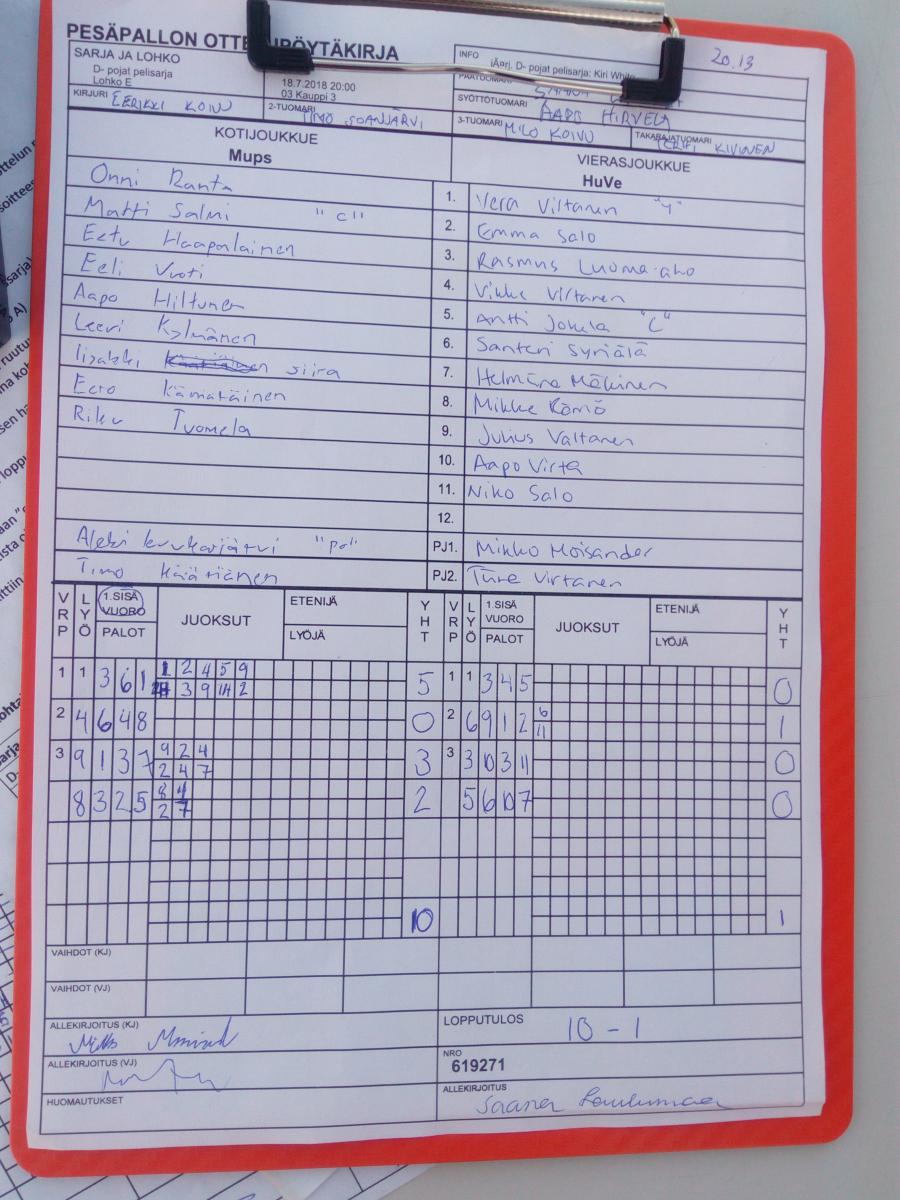 20.13
PESÄPALLON OTTELUPÖYTÄKIRJA
SARJA JA LOHKO
D- pojat pelisarja
Lohko E
18.7.2018 20:00
03 Kauppi 3
INFO
jÄprj. D- pojat pelisarja: Kiri White
PÄÄTUOMARI
SYÖTTÖTUOMARI AAPO HIRVELÄ
KIRJURI EERIKKI KOIVU
2-TUOMARI TIMO
3-TUOMARI MILO KOIVU
TAKARAJATUOMARI KIVINEN
KOTIJOUKKUE
Mups
VIERASJOUKKUE
HuVe
Onni Ranta
1. Vera Viltanen "Y"
Matti Salmi "C"
2. Emma Salo
Eetu Haapalainen
3. Rasmus Luoma-aho
Eeli Vuoti
4. Vikke Virtanen
Aapo Hiltunen
5. Antti Jokela "C"
Leevi Kylmänen
6. Santeri Syrjälä
Iisakki siira
7. Helmine Mäkinen
Eero kämäräinen
8. Mikke Römö
Riku Tuomela
9. Julius Valtanen
10. Aapo Virta
11. Niko Salo
12.
Aleksi "PJ"
PJ1. Mikko Moisander
Timo Kääriänen
PJ2. Ture Virtanen
VRP LYÖ 1.SISÄ VUORO PALOT JUOKSUT ETENIJÄ LYÖJÄ YHT VRP LYÖ 1.SISÄ VUORO PALOT JUOKSUT ETENIJÄ LYÖJÄ YHT
1 1 3 6 1 1 2 4 5 9 5 1 1 3 4 5 0
3 9 2
2 4 6 4 8 0 2 6 9 1 2 6 1
11
3 9 1 3 7 9 2 4 3 3 3 10 3 11 0
2 4 7
8 3 2 5 8 4 2 5 6 10 7 0
2 7
10 1
VAIHDOT (KJ)
VAIHDOT (VJ)
ALLEKIRJOITUS (KJ)
LOPPUTULOS 10 - 1
ALLEKIRJOITUS (VJ)
NRO
619271
HUOMAUTUKSET
ALLEKIRJOITUS Saana